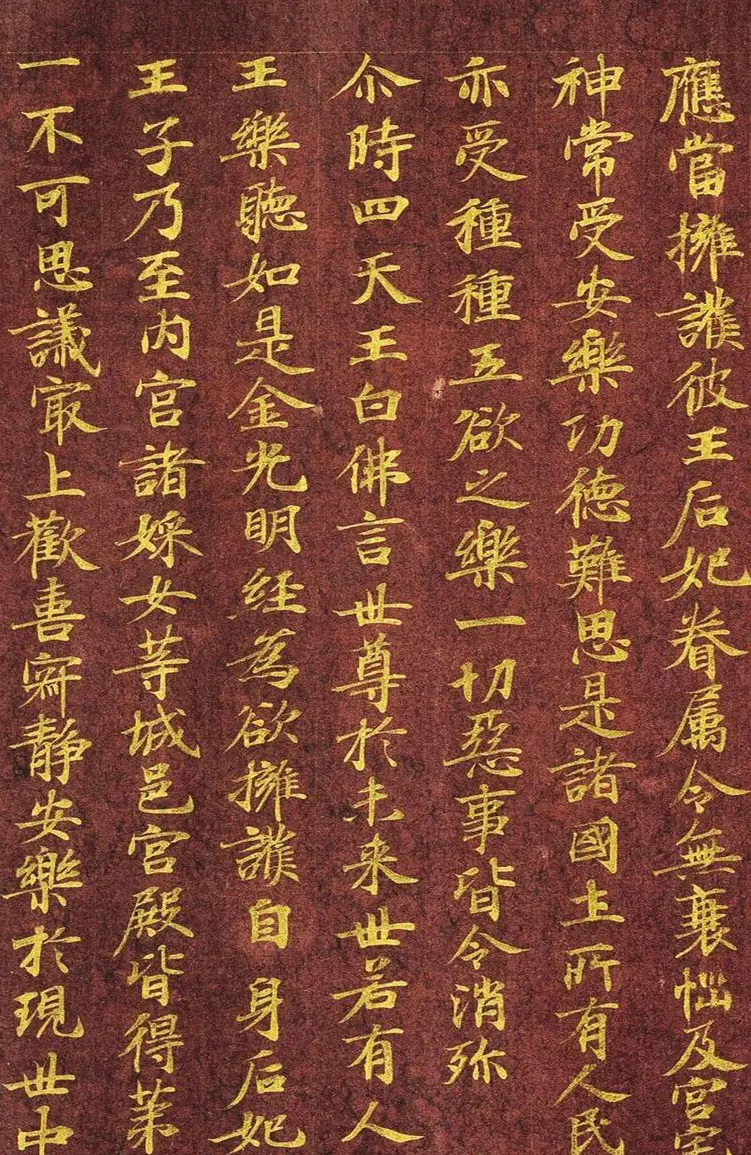 應當擁護彼王后妃眷属令無衰惱及宮宅
神常受安樂功徳難思是諸國土所有人民
亦受種種五欲之樂一切惡事皆令消殄
尒時四天王白佛言世尊於未来世若有人
王樂聽如是金光明經為欲擁護自身后妃
王子乃至内宮諸婇女等城邑宮殿皆得苐
一不可思議寂上歡喜寂静安樂於現世中